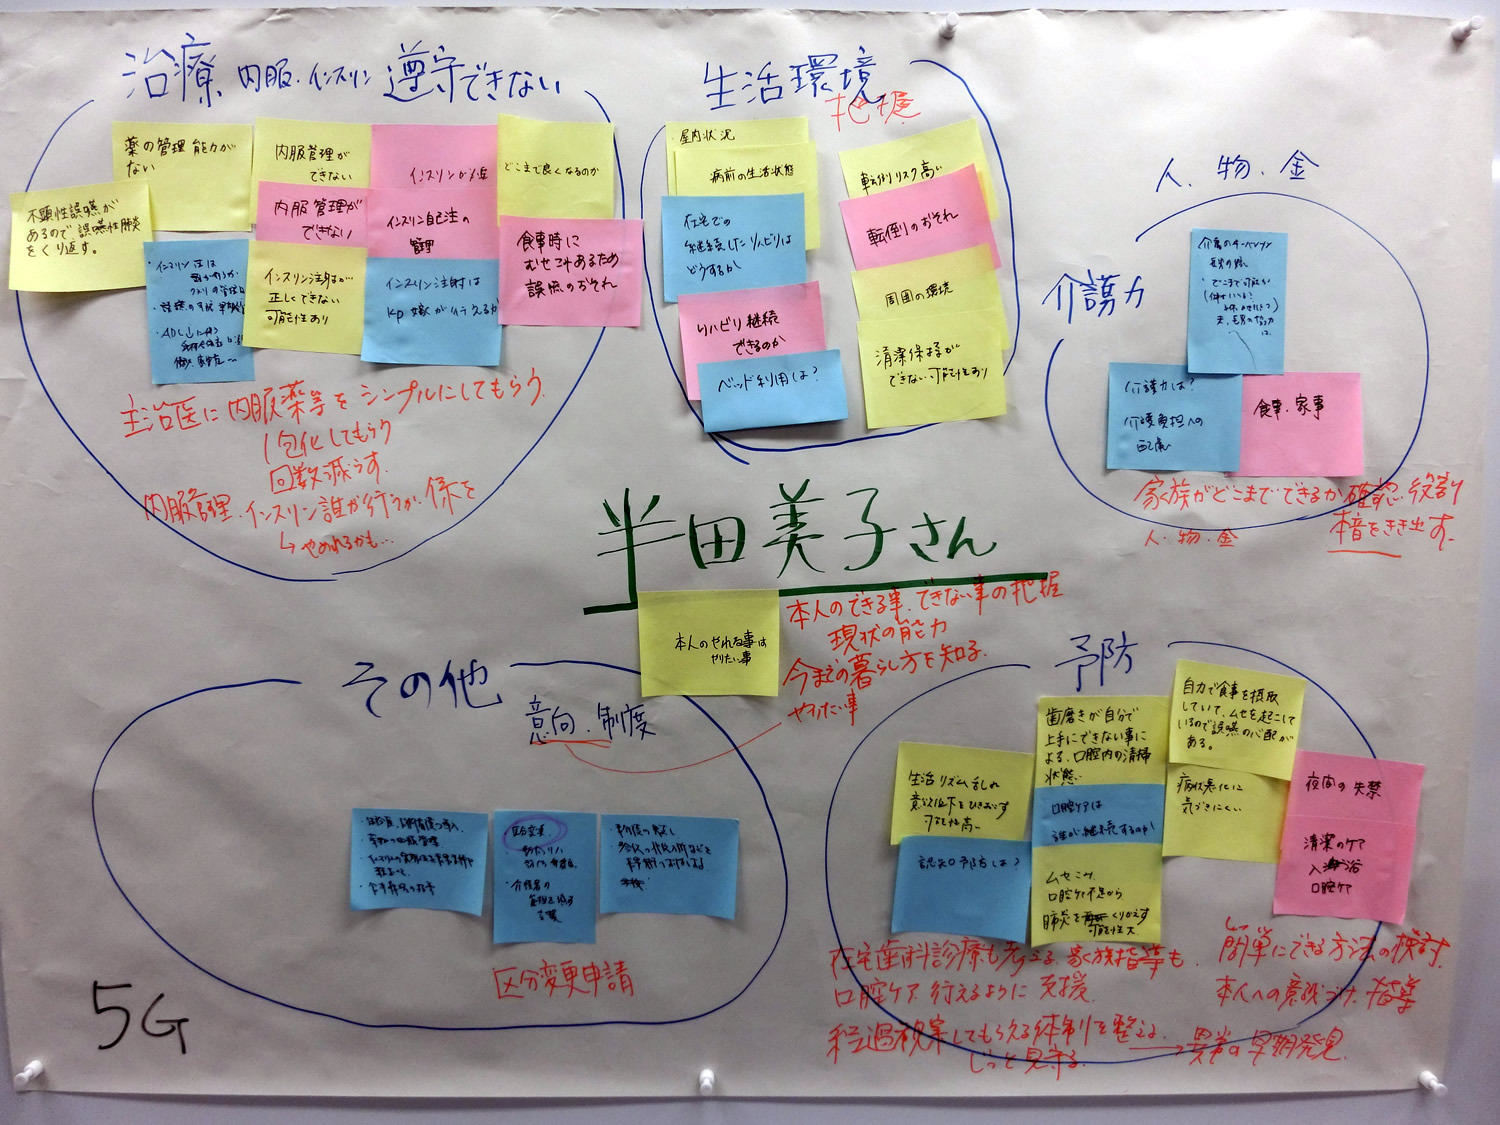 治療 内服・インスリン 遵守できない
薬の管理能力が
ない
内服管理が
できない
インスリンが必要
どこまで良くなるのか
不顕性誤嚥が
あるので誤嚥性肺炎
をくり返す。
内服管理が
できない
インスリン自己注の
管理
食事時に
むせこみあるため
誤嚥のおそれ
インスリン注射が…
正しくできない
可能性あり
インスリン注射は
Kp 嫁が行うえるか
主治医に内服薬等をシンプルにしてもらう
1包化してもらう
回数減らす
内服管理・インスリン誰が行うか、係を
↳ やめれるかも…
生活環境
把握
・屋内状況
病前の生活状態
転倒リスク高い
在宅での
継続したリハビリは
どうするか
転倒のおそれ
リハビリ継続
できるのか
周囲の環境
ベッド利用は?
清潔保持が
できない可能性あり
人・物・金
介護力
介護力は?
介護負担への
配慮
食事・家事
家族がどこまでできるか確認、役割
人・物・金
本音をきき出す。
半田美子さん
本人のやれる事は
やりたい事
本人のできる事、できない事の把握
現状の能力
今までの暮らし方を知る。
やりたい事
その他
意向、制度
区分変更
・介護者の
区分変更申請
5G
予防
歯磨きが自分で
上手にできない事に
よる、口腔内の清掃
状態
自力で食事を摂取
していて、ムセを起こして
いるので誤嚥の心配が
ある。
生活リズム乱れ
意欲低下をひきおこす
可能性高い
口腔ケアは
誰が継続するのか
病状悪化に
気づきにくい
夜間の失禁
認知予防は?
ムセこみ
口腔ケア不足から
肺炎をくりかえす
可能性大
清潔のケア
入浴
口腔ケア
在宅歯科診療も考える、家族指導も
口腔ケア行えるように支援
経過観察してもらえる体制を整える
じっと見守る
→ 異常の早期発見
簡単にできる方法の検討
本人への意識づけ、指導